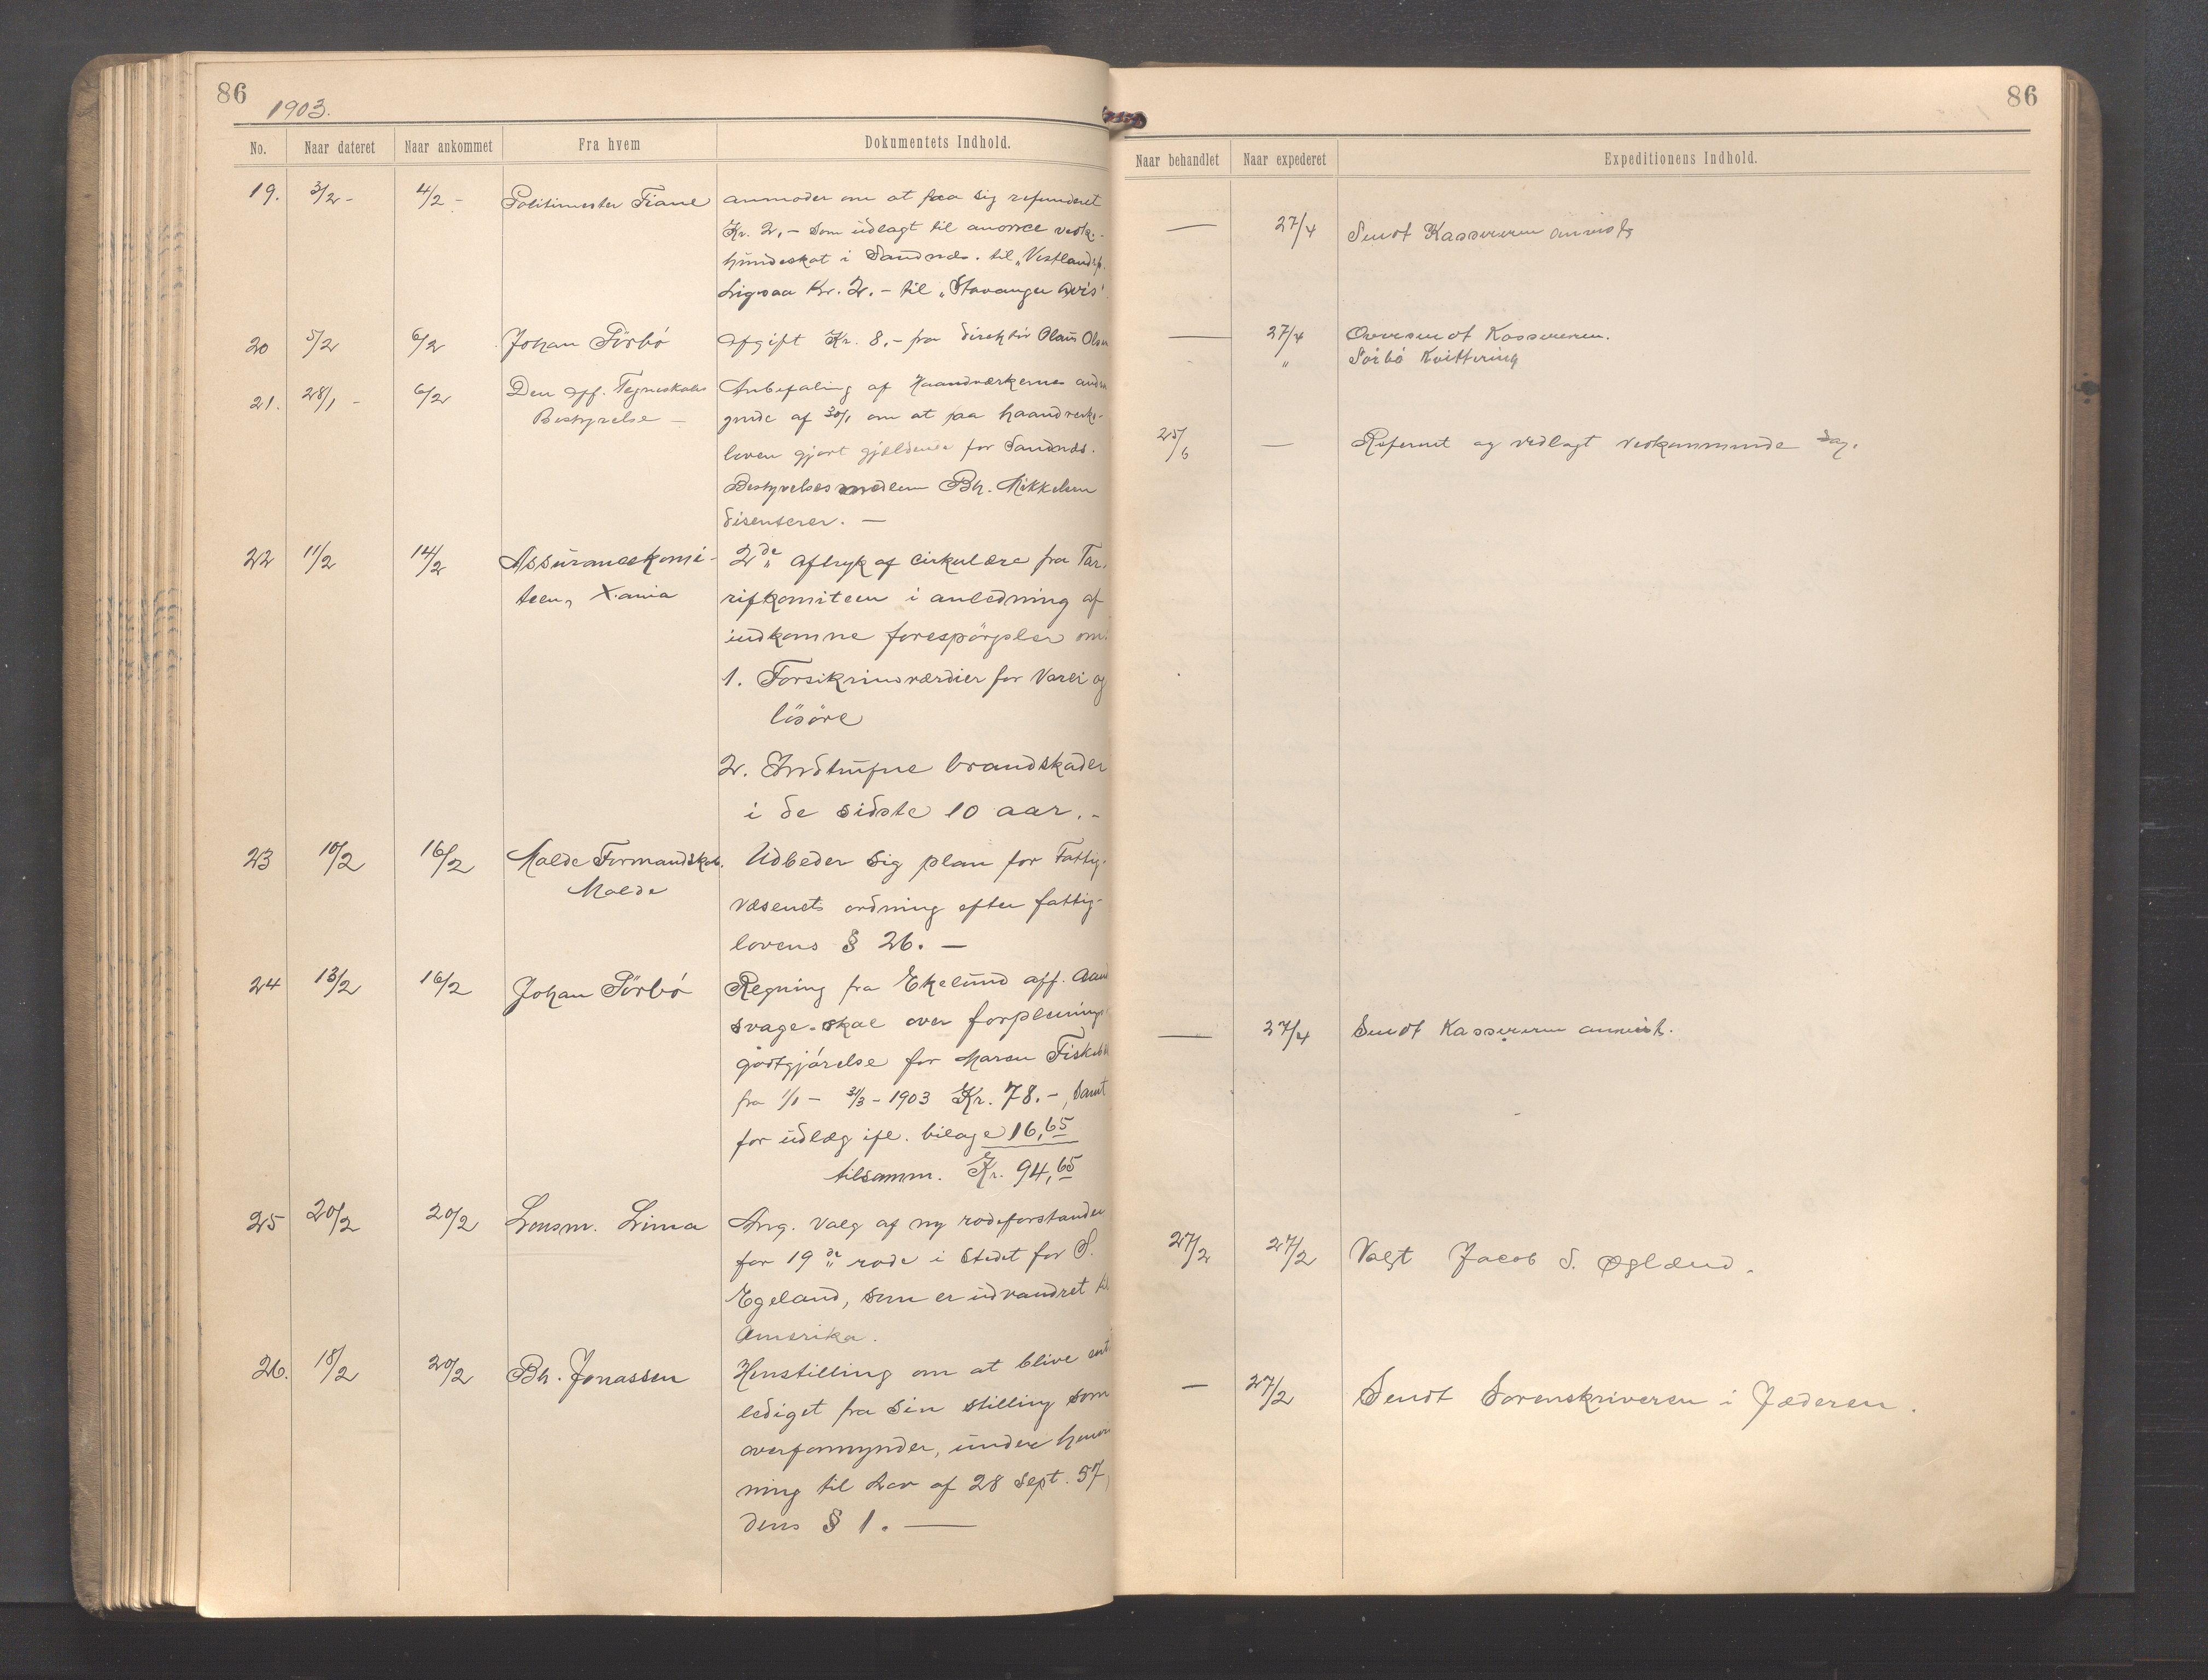 86
1903.
No. Naar dateret Naar ankommet Fra hvem Dokumentets Indhold.
19. 3/2 - 4/2 - Politimester Tiane anmoder om at faa sig refunderet
Kr. 2,- som udlagt til anonce vedk.
hundeskat i Sandnæs. til „Vestlandsp.
Ligesaa Kr. 2.- til „Stavanger Avis"
20 5/2 6/2 Johan Sörbö Afgift Kr. 8,- fra direktör Olaus Olsen
21. 28/1 - 6/2 Den off. Tegneskoles Anbefaling af Haandværkernes andra
Bestyrelse - gende af 30/1 om at faa haandverks-
loven gjort gjældende for Sandnæs.
Bestyrelsesmedlem Bh. Mikkelsen
disenterer. —
22 11/2 14/2 Assurancekomi- 2de aftryk af cirkulære fra Tar.
teen, X.ania rifkomiteen i anledning af
indkomne forespörgsler om:
1. Forsikrindværdier for Varer og
lösöre
2. Indtrufne brandskader
i de sidste 10 aar. -
23 10/2 16/2 Malde Formandskab. Udbeder sig plan for Fattig.
Malde væsenets ordning efter fattig-
lovens § 26. —
24 13/2 16/2 Johan Sörbö Regning fra Ekelund aff. Aand
svage-skole over forpleinings
godtgjörelse for Maren
fra 1/1 - 31/3 - 1903 Kr. 78.-, samt
for udlæg ifl. bilage 16,65
tilsamm. Kr. 94,65
25 20/2 20/2 Lensm. Lima Ang. valg af ny rodeforstander
for 19de rode i stedet for S.
Egeland, som er udvandret til
Amerika.
26. 18/2 20/2 Bh. Jonassen Henstilling om at blive ent
lediget fra sin stilling som
overformynder, under henvis
ning til Lov af 28 Sept. 57,
dens § 1. —
86
Naar behandlet Naar expederet Expeditionens Indhold.
— 27/4 Sendt Kassereren anvist
— 27/4 Oversendt Kassereren.
„ Sörbö Kvittering
25/6 — Referert og vedlagt vedkommende sag.
— 27/4 Sendt Kassereren anvist.
27/2 27/2 Valgt Jacob S. Øglænd.
— 27/2 Sendt Sorenskriveren i Jæderen.